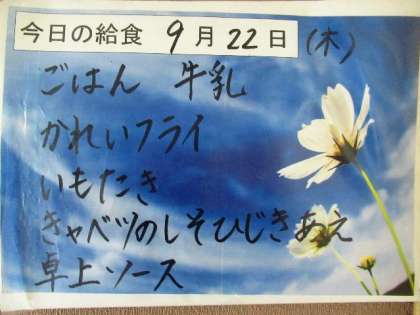 今日の給食 9月22日(木)
ごはん 牛乳
かれいフライ
いもたき
きゃベツのしそひじきあえ
卓上ソース